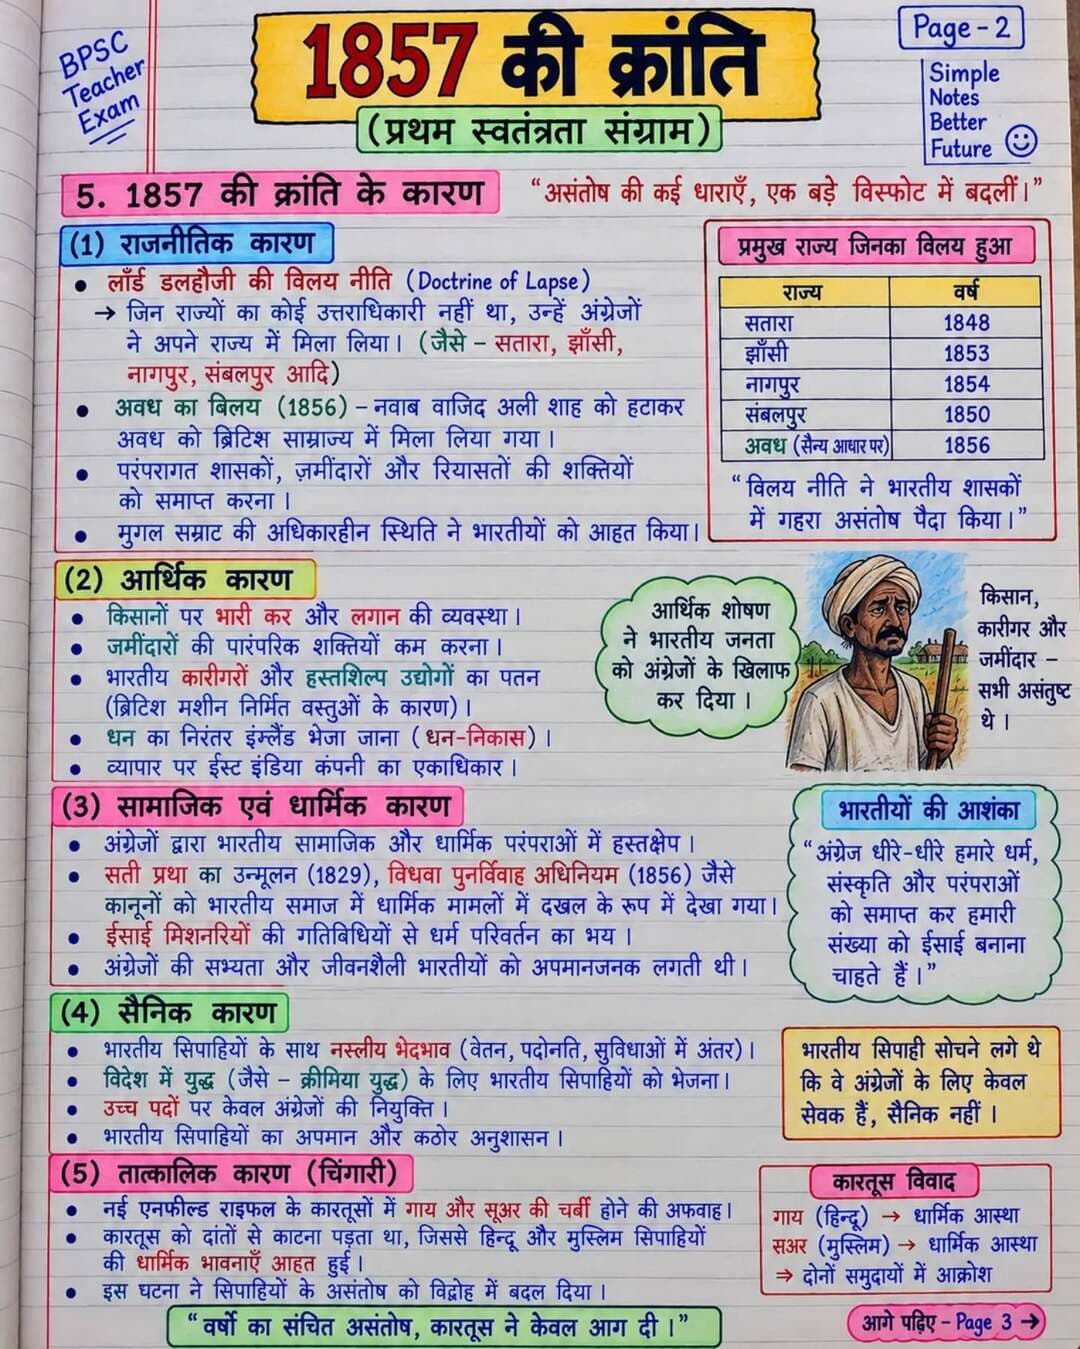 BPSC
Teacher
Exam
1857 की क्रांति
(प्रथम स्वतंत्रता संग्राम)
Page - 2
Simple
Notes
Better
Future
5. 1857 की क्रांति के कारण
“असंतोष की कई धाराएँ, एक बड़े विस्फोट में बदलीं।”
(1) राजनीतिक कारण
• लॉर्ड डलहौजी की विलय नीति (Doctrine of Lapse)
→ जिन राज्यों का कोई उत्तराधिकारी नहीं था, उन्हें अंग्रेजों
ने अपने राज्य में मिला लिया। (जैसे – सतारा, झाँसी,
नागपुर, संबलपुर आदि)
• अवध का बिलय (1856) – नवाब वाजिद अली शाह को हटाकर
अवध को ब्रिटिश साम्राज्य में मिला लिया गया।
• परंपरागत शासकों, ज़मींदारों और रियासतों की शक्तियों
को समाप्त करना।
• मुगल सम्राट की अधिकारहीन स्थिति ने भारतीयों को आहत किया।
प्रमुख राज्य जिनका विलय हुआ
राज्य वर्ष
सतारा 1848
झाँसी 1853
नागपुर 1854
संबलपुर 1850
अवध (सैन्य आधार पर) 1856
“विलय नीति ने भारतीय शासकों
में गहरा असंतोष पैदा किया।”
(2) आर्थिक कारण
• किसानों पर भारी कर और लगान की व्यवस्था।
• जमींदारों की पारंपरिक शक्तियों कम करना।
• भारतीय कारीगरों और हस्तशिल्प उद्योगों का पतन
(ब्रिटिश मशीन निर्मित वस्तुओं के कारण)।
• धन का निरंतर इंग्लैंड भेजा जाना (धन-निकास)।
• व्यापार पर ईस्ट इंडिया कंपनी का एकाधिकार।
आर्थिक शोषण
ने भारतीय जनता
को अंग्रेजों के खिलाफ
कर दिया।
किसान,
कारीगर और
जमींदार –
सभी असंतुष्ट
थे।
(3) सामाजिक एवं धार्मिक कारण
• अंग्रेजों द्वारा भारतीय सामाजिक और धार्मिक परंपराओं में हस्तक्षेप।
• सती प्रथा का उन्मूलन (1829), विधवा पुनर्विवाह अधिनियम (1856) जैसे
कानूनों को भारतीय समाज में धार्मिक मामलों में दखल के रूप में देखा गया।
• ईसाई मिशनरियों की गतिबिधियों से धर्म परिवर्तन का भय।
• अंग्रेजों की सभ्यता और जीवनशैली भारतीयों को अपमानजनक लगती थी।
भारतीयों की आशंका
“अंग्रेज धीरे-धीरे हमारे धर्म,
संस्कृति और परंपराओं
को समाप्त कर हमारी
संख्या को ईसाई बनाना
चाहते हैं।”
(4) सैनिक कारण
• भारतीय सिपाहियों के साथ नस्लीय भेदभाव (वेतन, पदोनति, सुविधाओं में अंतर)।
• विदेश में युद्ध (जैसे – क्रीमिया युद्ध) के लिए भारतीय सिपाहियों को भेजना।
• उच्च पदों पर केवल अंग्रेजों की नियुक्ति।
• भारतीय सिपाहियों का अपमान और कठोर अनुशासन।
भारतीय सिपाही सोचने लगे थे
कि वे अंग्रेजों के लिए केवल
सेवक हैं, सैनिक नहीं।
(5) तात्कालिक कारण (चिंगारी)
• नई एनफील्ड राइफल के कारतूसों में गाय और सूअर की चर्बी होने की अफवाह।
• कारतूस को दांतों से काटना पड़ता था, जिससे हिन्दू और मुस्लिम सिपाहियों
की धार्मिक भावनाएँ आहत हुई।
• इस घटना ने सिपाहियों के असंतोष को विद्रोह में बदल दिया।
कारतूस विवाद
गाय (हिन्दू) → धार्मिक आस्था
सअर (मुस्लिम) → धार्मिक आस्था
→ दोनों समुदायों में आक्रोश
“वर्षो का संचित असंतोष, कारतूस ने केवल आग दी।”
आगे पढ़िए – Page 3 →